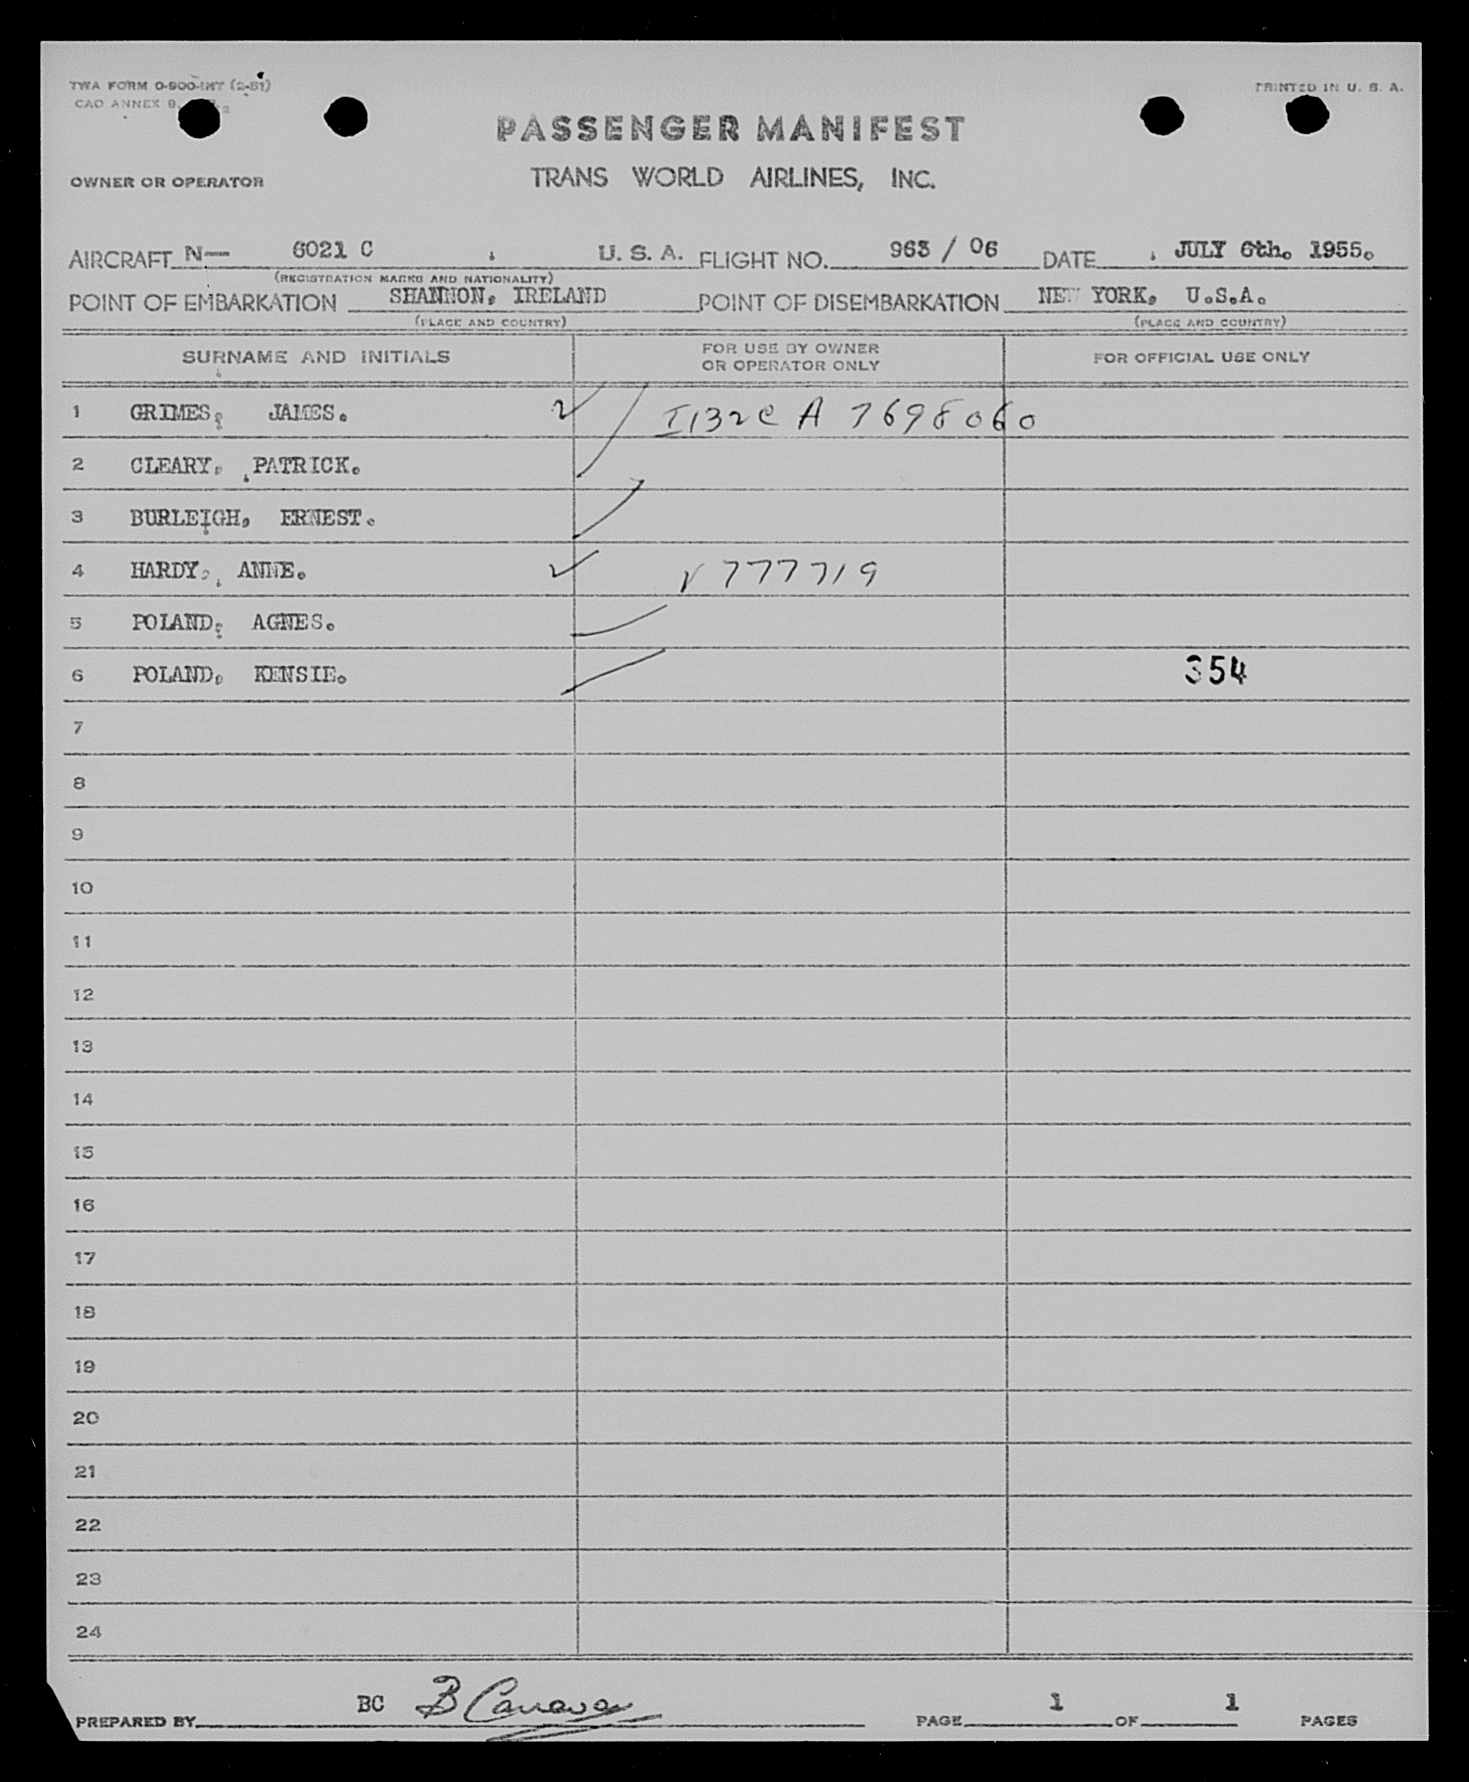 TWA FORM 0-900-INT (2-51)
PRINTED IN U. S. A.
CAO ANNEX 9,
PASSENGER MANIFEST
OWNER OR OPERATOR
TRANS WORLD AIRLINES, INC.
AIRCRAFT N— 6021 C U. S. A. FLIGHT NO. 963 / 06 DATE JULY 6th. 1955.
(REGISTRATION MARKS AND NATIONALITY)
POINT OF EMBARKATION SHANNON, IRELAND POINT OF DISEMBARKATION NEW YORK, U.S.A.
(PLACE AND COUNTRY) (PLACE AND COUNTRY)
SURNAME AND INITIALS
FOR USE BY OWNER
OR OPERATOR ONLY
FOR OFFICIAL USE ONLY
1 GRIMES, JAMES. I132C A 7698060
2 CLEARY, PATRICK.
3 BURLEIGH, ERNEST.
4 HARDY, ANNE. V 777719
5 POLAND, AGNES.
6 POLAND, KENSIE. 354
7
8
9
10
11
12
13
14
15
16
17
18
19
20
21
22
23
24
PREPARED BY BC B PAGE 1 OF 1 PAGES